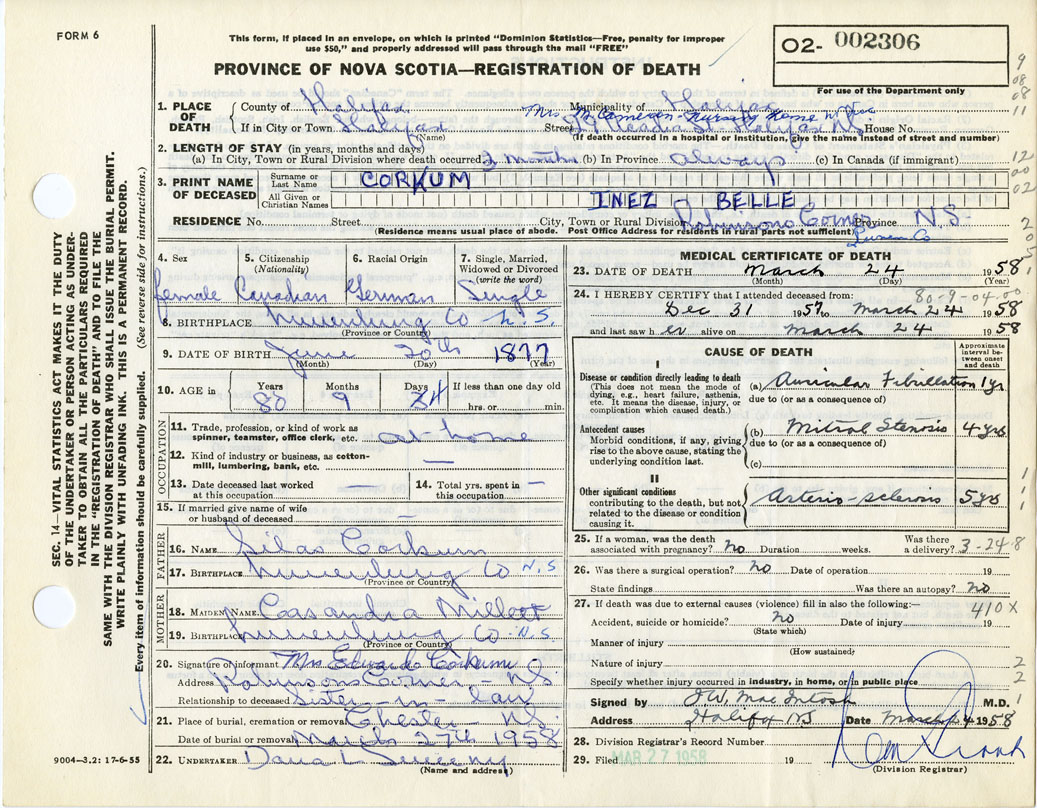 FORM 6
This form, if placed in an envelope, on which is printed "Dominion Statistics—Free, penalty for improper
use $50," and properly addressed will pass through the mail "FREE"
PROVINCE OF NOVA SCOTIA—REGISTRATION OF DEATH
O2- 002306
For use of the Department only
9
08
08
11
12
00
02
2
0
5
1
SEC. 14—VITAL STATISTICS ACT MAKES IT THE DUTY
OF THE UNDERTAKER OR PERSON ACTING AS UNDER-
TAKER TO OBTAIN ALL THE PARTICULARS REQUIRED
IN THE "REGISTRATION OF DEATH" AND TO FILE THE
SAME WITH THE DIVISION REGISTRAR WHO SHALL ISSUE THE BURIAL PERMIT.
WRITE PLAINLY WITH UNFADING INK. THIS IS A PERMANENT RECORD.
Every item of information should be carefully supplied. (See reverse side for instructions.)
1. PLACE OF DEATH
County of Halifax Municipality of Halifax
Mrs McCameron - Nursing Home
If in City or Town Halifax Street St - Halifax N.S. House No.
(Name) (If death occurred in hospital or institution, give the name instead of street and number)
2. LENGTH OF STAY (in years, months and days)
(a) In City, Town or Rural Division where death occurred 3 months (b) In Province always (c) In Canada (if immigrant)
3. PRINT NAME OF DECEASED
Surname or Last Name CORKUM
All Given or Christian Names INEZ BELLE
RESIDENCE No. Street City, Town or Rural Division Robinsons Corner Province N.S.
(Residence means usual place of abode. Post Office Address for residents in rural parts not sufficient) Lunen Co
4. Sex female
5. Citizenship (Nationality) Canadian
6. Racial Origin German
7. Single, Married, Widowed or Divorced (write the word) Single
8. BIRTHPLACE Lunenburg Co N.S.
(Province or Country)
9. DATE OF BIRTH June 20th 1877
(Month) (Day) (Year)
10. AGE in Years 80 Months 9 Days 24 If less than one day old
hrs. or min.
OCCUPATION
11. Trade, profession, or kind of work as
spinner, teamster, office clerk, etc. at home
12. Kind of industry or business, as cotton-
mill, lumbering, bank, etc. —
13. Date deceased last worked
at this occupation —
14. Total yrs. spent in
this occupation —
15. If married give name of wife
or husband of deceased —
FATHER
16. NAME Silas Corkum
17. BIRTHPLACE Lunenburg Co N.S
(Province or Country)
MOTHER
18. MAIDEN NAME Casandra Millett
19. BIRTHPLACE Lunenburg Co N.S.
(Province or Country)
20. Signature of informant Mrs Edward Corkum
Address Robinsons Corner - N.S.
Relationship to deceased Sister-in-law
21. Place of burial, cremation or removal Chester - N.S.
Date of burial or removal March 27th 1958
22. UNDERTAKER Dana L Sweeny
(Name and address)
9004—3.2: 17-6-55
MEDICAL CERTIFICATE OF DEATH
23. DATE OF DEATH March 24 1958
(Month) (Day) (Year)
80-9-04.00
24. I HEREBY CERTIFY that I attended deceased from:
Dec 31 1957 to March 24 1958
and last saw her alive on March 24 1958
CAUSE OF DEATH
Approximate interval between onset and death
I
Disease or condition directly leading to death
(This does not mean the mode of
dying, e.g., heart failure, asthenia,
etc. It means the disease, injury, or
complication which caused death.)
(a) Auricular Fibrillation 1 yr
due to (or as a consequence of)
Antecedent causes
Morbid conditions, if any, giving
rise to the above cause, stating the
underlying condition last.
(b) Mitral Stenosis 4 yrs
due to (or as a consequence of)
(c)
II
Other significant conditions
contributing to the death, but not
related to the disease or condition
causing it.
Arterio-sclerosis 5 yrs
1
1
1
25. If a woman, was the death
associated with pregnancy? no Duration weeks. Was there
a delivery? 3-24-8
26. Was there a surgical operation? no Date of operation 19
State findings Was there an autopsy? no
27. If death was due to external causes (violence) fill in also the following:—
410X
Accident, suicide or homicide? no Date of injury 19
(State which)
Manner of injury
(How sustained)
Nature of injury 2
Specify whether injury occurred in industry, in home, or in public place 2
Signed by J.W. MacIntosh M.D. 1
Address Halifax NS Date March 1958
28. Division Registrar's Record Number
29. Filed MAR 27 1958 19
(Division Registrar)